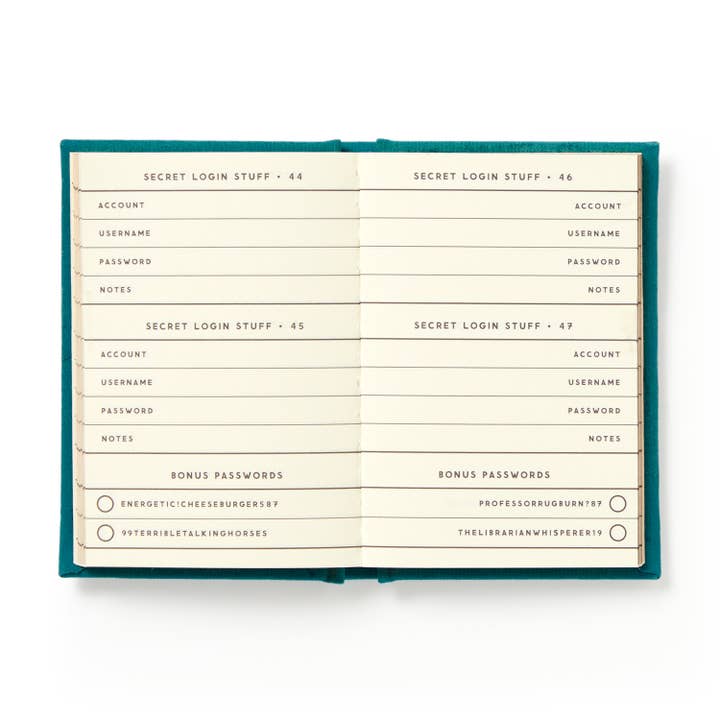 SECRET LOGIN STUFF • 44
ACCOUNT
USERNAME
PASSWORD
NOTES
SECRET LOGIN STUFF • 45
ACCOUNT
USERNAME
PASSWORD
NOTES
BONUS PASSWORDS
ENERGETIC!CHEESEBURGER587
99TERRIBLETALKINGHORSES
SECRET LOGIN STUFF • 46
ACCOUNT
USERNAME
PASSWORD
NOTES
SECRET LOGIN STUFF • 47
ACCOUNT
USERNAME
PASSWORD
NOTES
BONUS PASSWORDS
PROFESSORRUGBURN?87
THELIBRARIANWHISPERER19